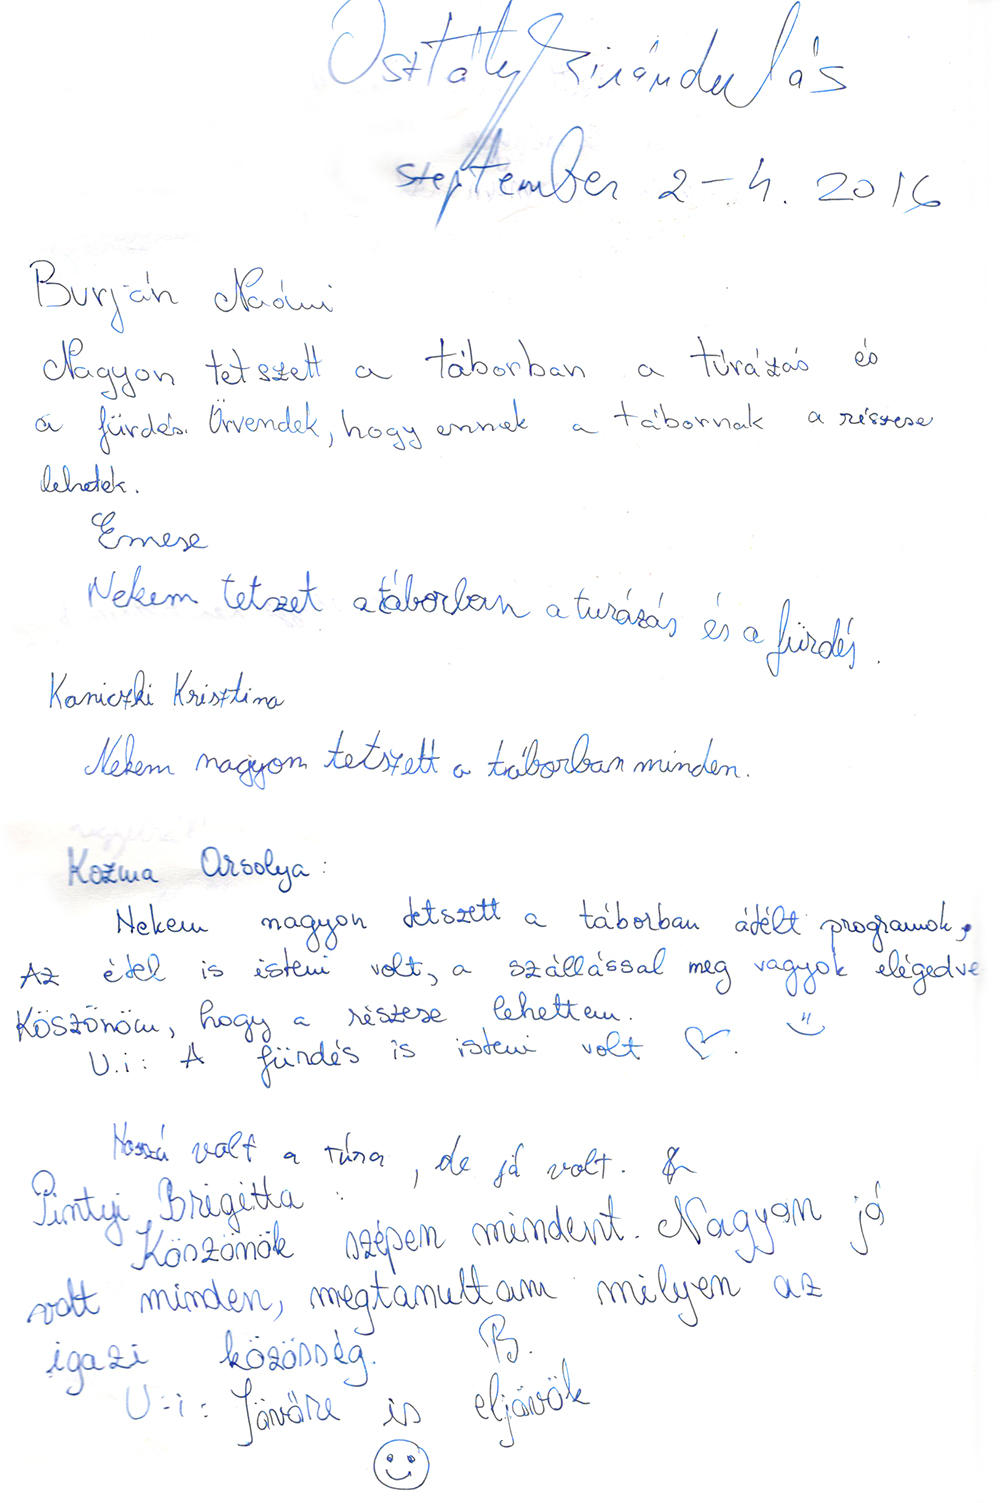 Osztálykirándulás
szeptember 2-4. 2016
Burján Naómi
Nagyon tetszett a táborban a túrázás és
a fürdés. Örvendek, hogy ennek a tábornak a részese
lehetek.
Emese
Nekem tetszet a táborban a turázás és a fürdés.
Kaniczki Krisztina
Nekem nagyon tetszett a táborban minden.
Kozma Orsolya:
Nekem nagyon tetszett a táborban átélt programok,
Az étel is isteni volt, a szállással meg vagyok elégedve
Köszönöm, hogy a részese lehettem.
U.i: A fürdés is isteni volt
Hosszú volt a túra, de jó volt.
Pintyi Brigitta:
Köszönök szépen mindent. Nagyon jó
volt minden, megtanultam milyen az
igazi közösség. B.
U.i: Jövőre is eljövök